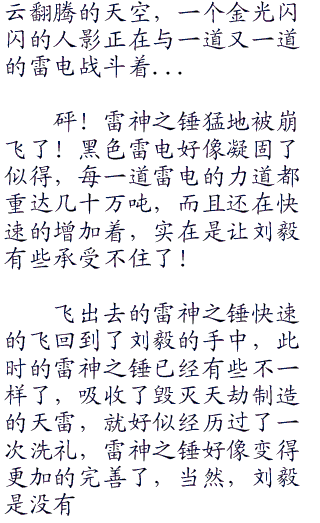 云翻腾的天空，一个金光闪
闪的人影正在与一道又一道
的雷电战斗着...
砰！雷神之锤猛地被崩
飞了！黑色雷电好像凝固了
似得，每一道雷电的力道都
重达几十万吨，而且还在快
速的增加着，实在是让刘毅
有些承受不住了！
飞出去的雷神之锤快速
的飞回到了刘毅的手中，此
时的雷神之锤已经有些不一
样了，吸收了毁灭天劫制造
的天雷，就好似经历过了一
次洗礼，雷神之锤好像变得
更加的完善了，当然，刘毅
是没有